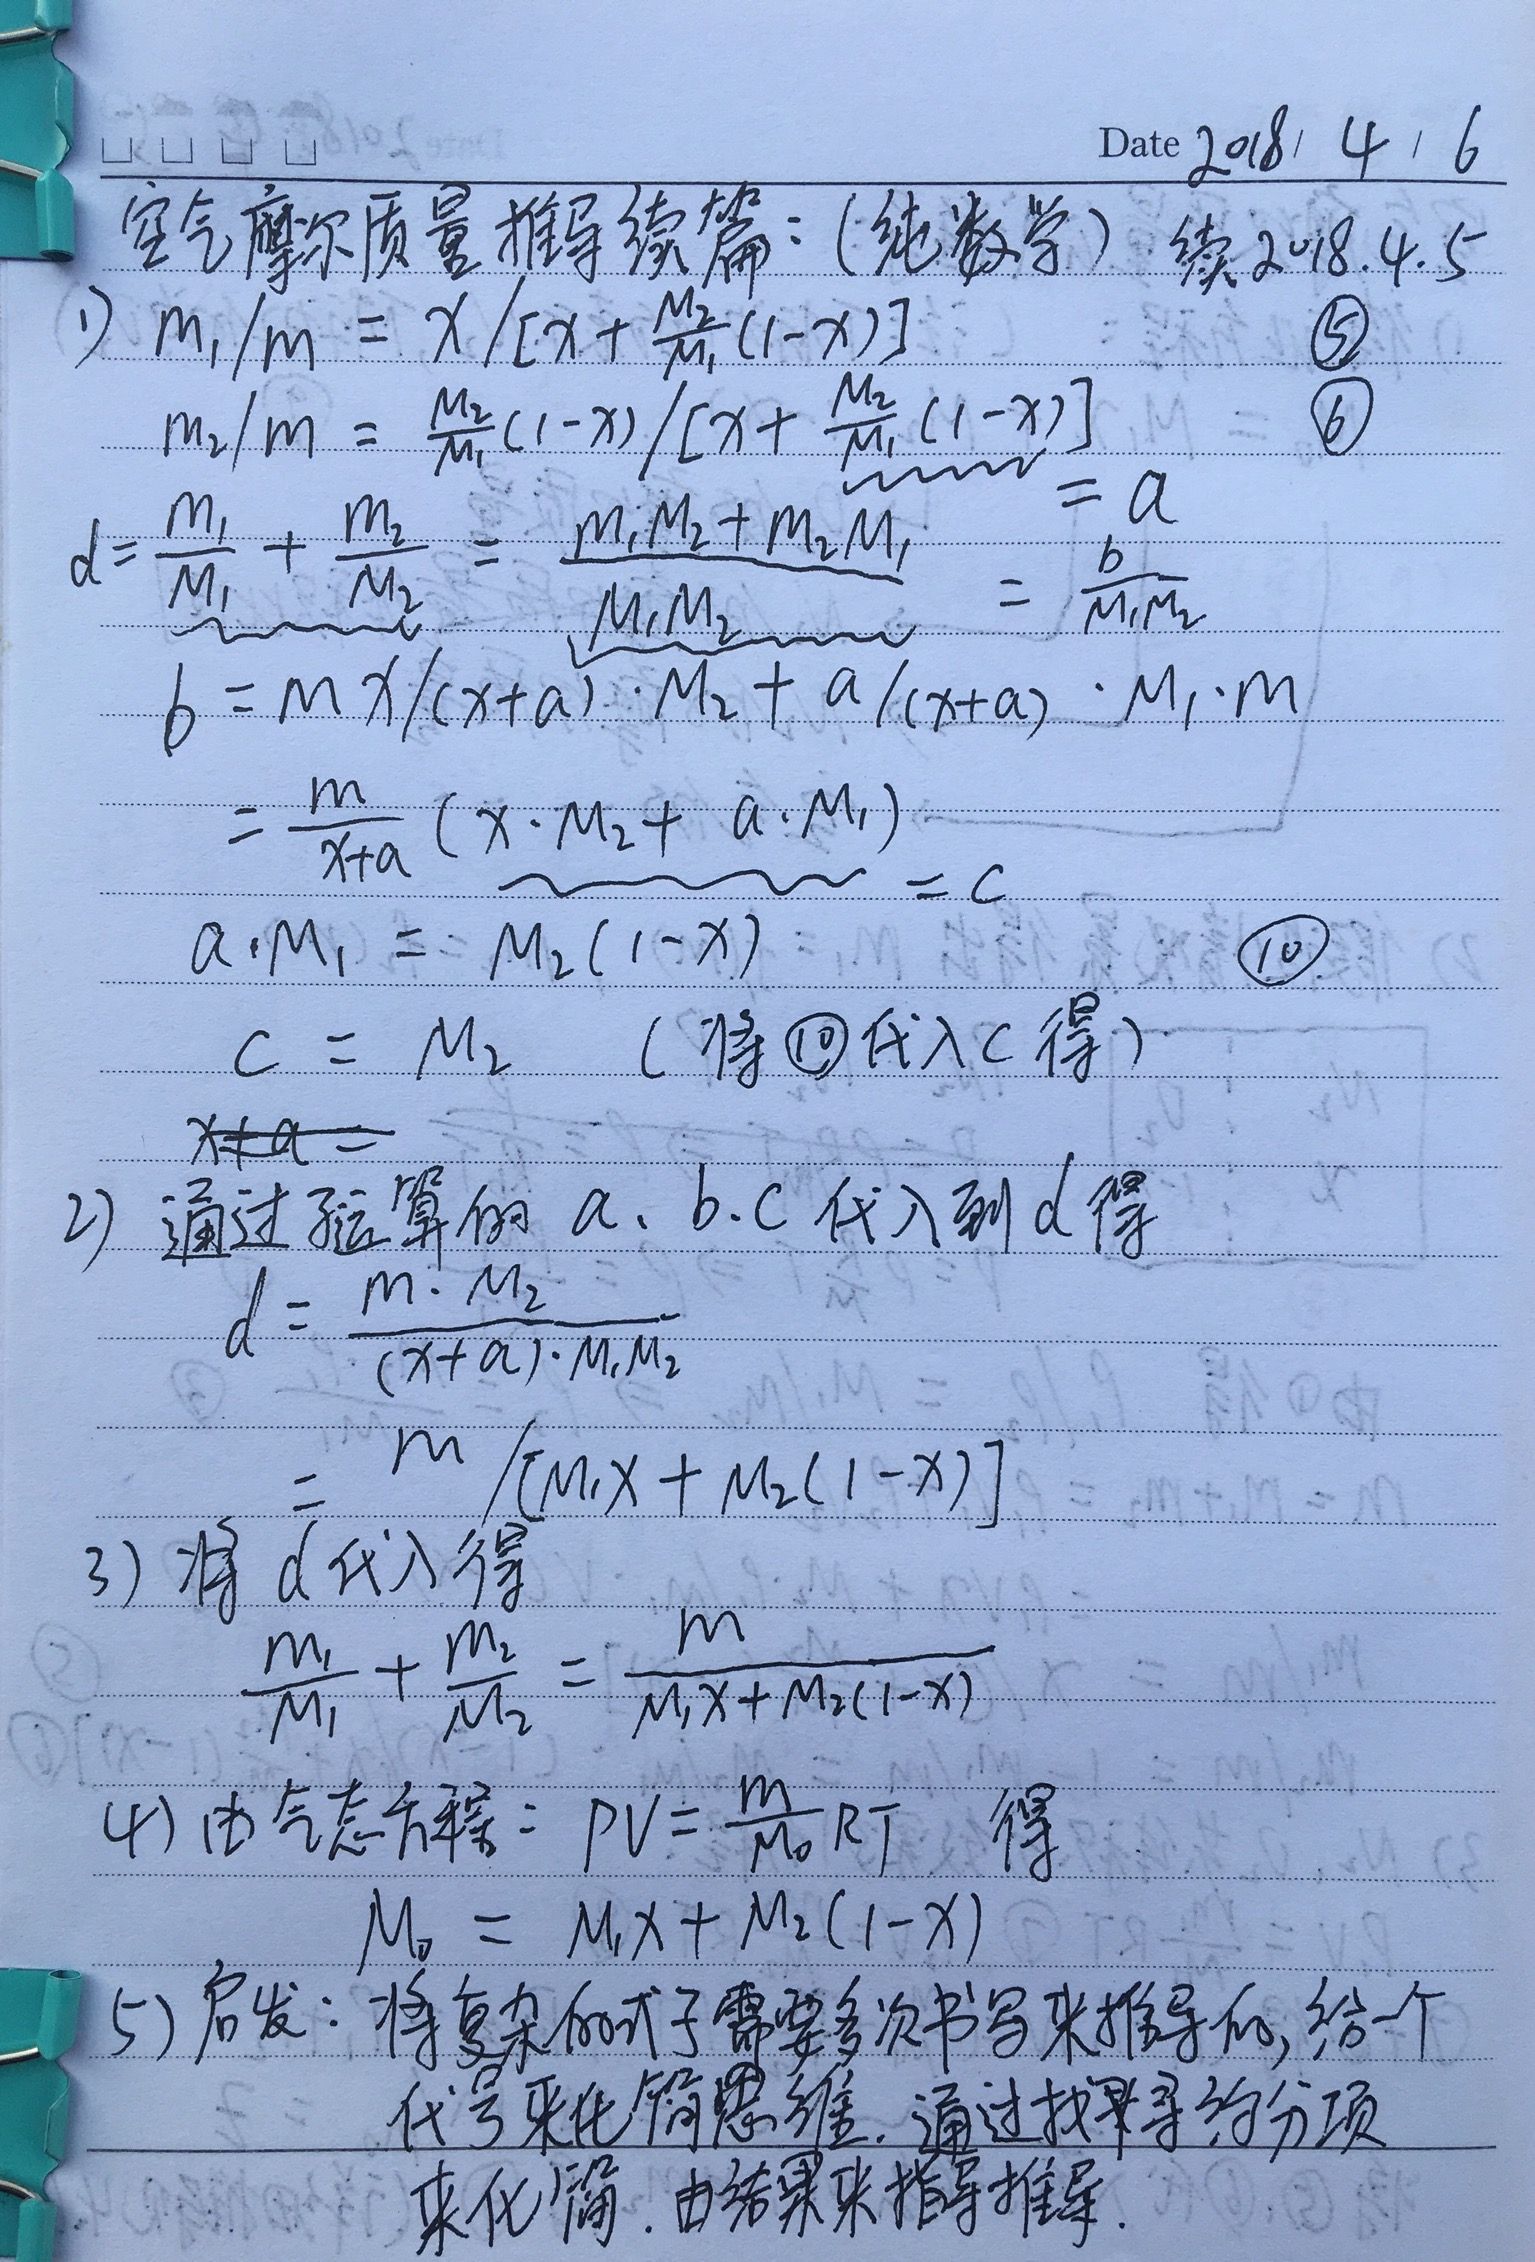 Date 2018 / 4 / 6
空气摩尔质量推导续篇：(纯数学) 续2018.4.5
1) m₁/m = x/[x+M₂/M₁(1-x)] ⑤
m₂/m = M₂/M₁(1-x)/[x+M₂/M₁(1-x)] ⑥
= a
d = m₁/M₁ + m₂/M₂ = (m₁M₂+m₂M₁)/(M₁M₂) = b/(M₁M₂)
b = mx/(x+a)·M₂ + a/(x+a)·M₁·m
= m/(x+a) (x·M₂ + a·M₁)
= c
a·M₁ = M₂(1-x) ⑩
c = M₂ (将⑩代入c得)
x+a =
2) 通过运算的 a、b.c 代入到d得
d = m·M₂/((x+a)·M₁M₂)
= m/[M₁x+M₂(1-x)]
3) 将d代入得
m₁/M₁ + m₂/M₂ = m/(M₁x+M₂(1-x))
4) 由气态方程：PV = m/M₀ RT 得
M₀ = M₁x+M₂(1-x)
5) 启发：将复杂的式子需要多次书写来推导的,给一个
代号来化简思维.通过找寻约分项
来化简.由结果来指导推导.